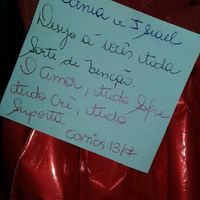 ânia e Israel
Desejo á vocês tuda
sorte de benção.
O amor, tudo sofre
tudo crê, tudo
suporta
corrios 13/7